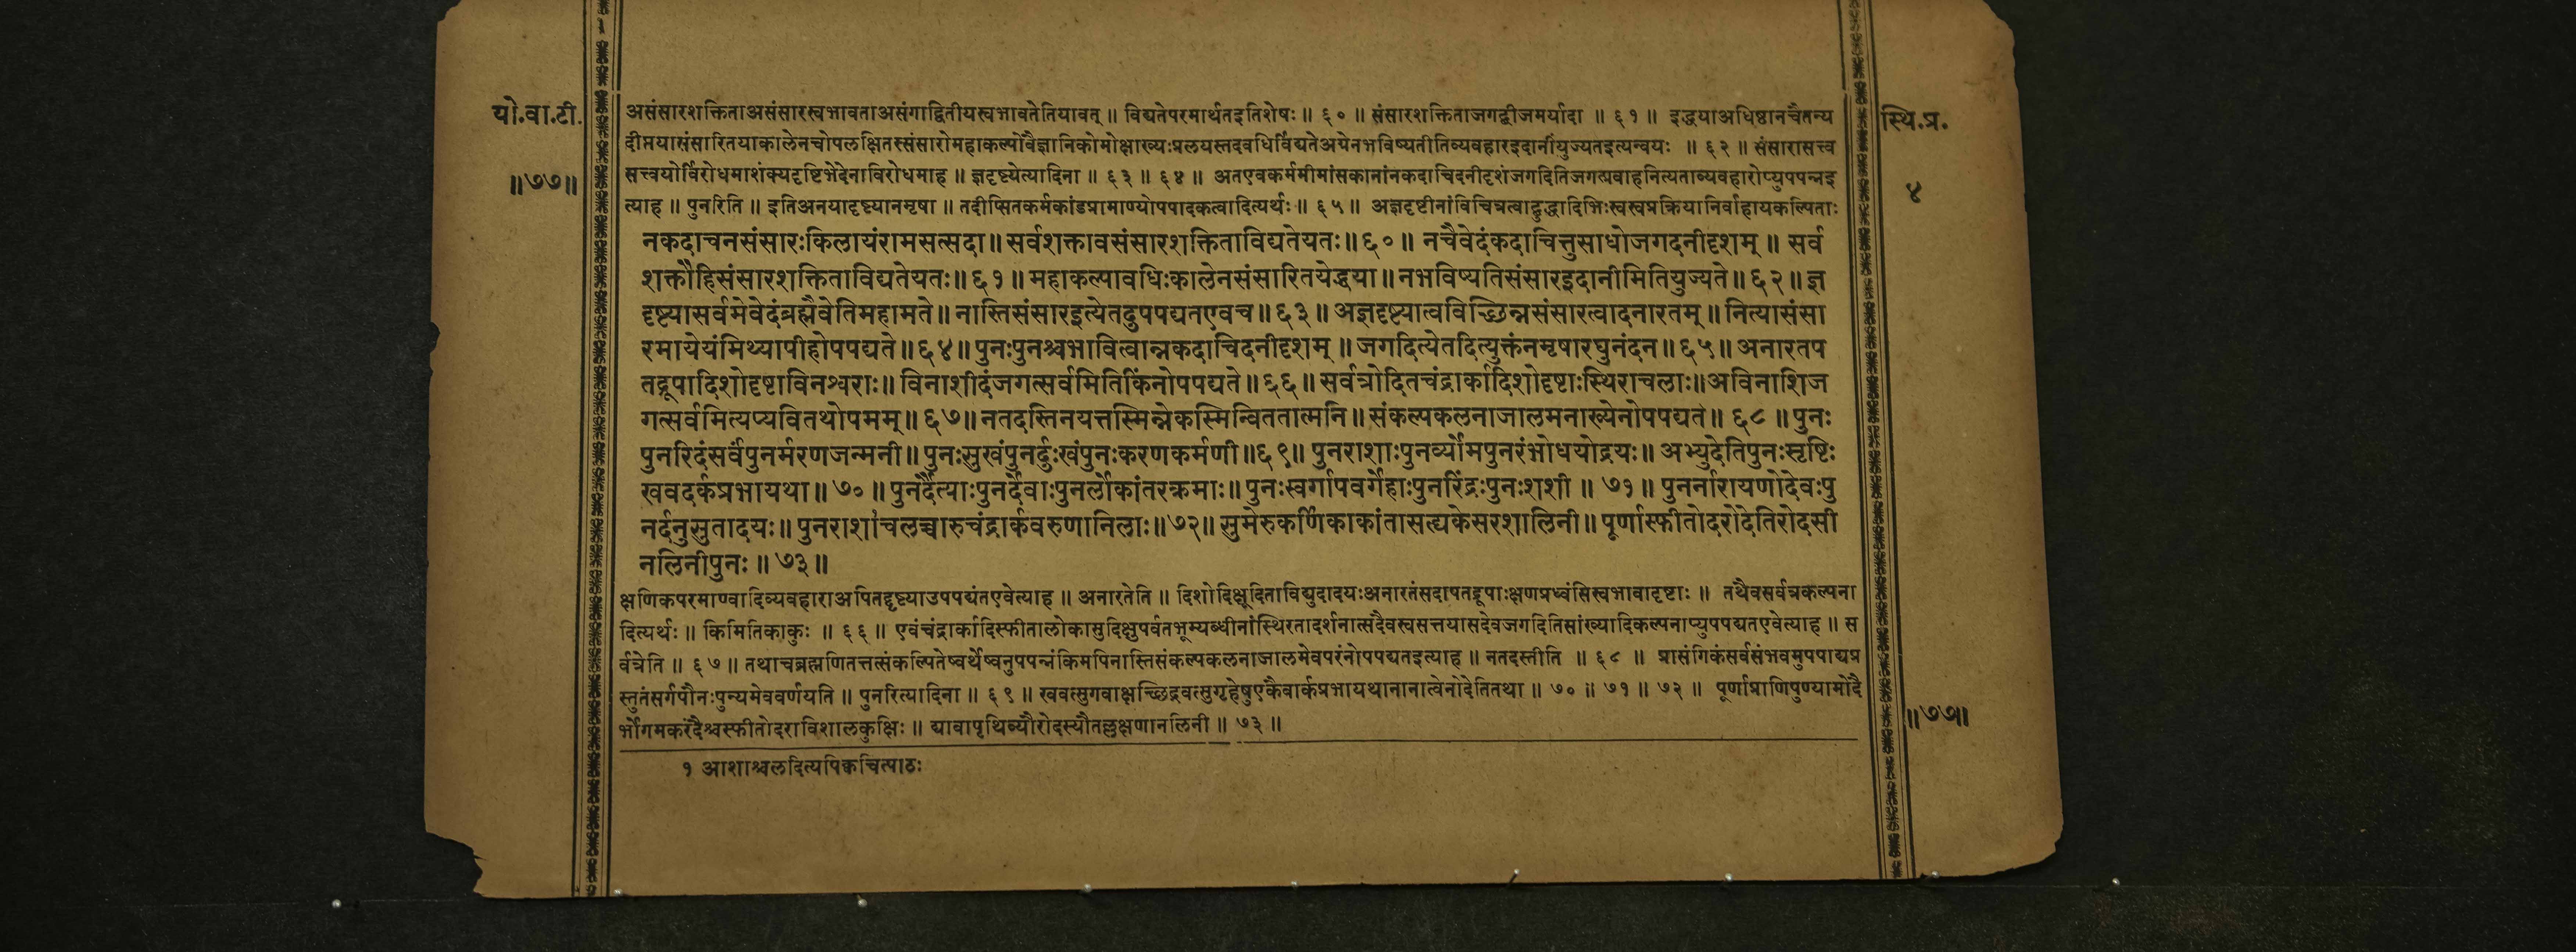 यो.वा.टी.
॥७७॥
असंसारशक्तिताअसंसारस्वभावताअसंगाद्वितीयस्वभावतेतियावत् ॥ विद्यतेपरमार्थतइतिशेषः ॥ ६० ॥ संसारशक्तिताजगद्बीजमर्यादा ॥ ६१ ॥ इद्धयाअधिष्ठानचैतन्य
दीप्तयासंसारितयाकालेनचोपलक्षितस्संसारोमहाकल्पोवैज्ञानिकोमोक्षाख्यःप्रलयस्तदवधिर्विद्यतेअग्रेनभविष्यतीतिव्यवहारइदानींयुज्यतइत्यन्वयः ॥ ६२ ॥ संसारासत्त्व
सत्त्वयोर्विरोधमाशंक्यदृष्टिभेदेनाविरोधमाह ॥ ज्ञदृष्ट्येत्यादिना ॥ ६३ ॥ ६४ ॥ अतएवकर्ममीमांसकानांनकदाचिदनीदृशंजगदितिजगत्प्रवाहनित्यताव्यवहारोप्युपपन्नइ
त्याह ॥ पुनरिति ॥ इतिअनयादृष्ट्यानमृषा ॥ तदीप्सितकर्मकांडप्रामाण्योपपादकत्वादित्यर्थः ॥ ६५ ॥ अज्ञदृष्टीनांविचित्रत्वाद्बुद्धादिभिःस्वस्वप्रक्रियानिर्वाहायकल्पिताः
नकदाचनसंसारःकिलायंरामसत्सदा ॥ सर्वशक्तावसंसारशक्तिताविद्यतेयतः ॥ ६० ॥ नचैवेदंकदाचित्तुसाधोजगदनीदृशम् ॥ सर्व
शक्तौहिसंसारशक्तिताविद्यतेयतः ॥ ६१ ॥ महाकल्पावधिःकालेनसंसारितयेद्धया ॥ नभविष्यतिसंसारइदानीमितियुज्यते ॥ ६२ ॥ ज्ञ
दृष्ट्यासर्वमेवेदंब्रह्मैवेतिमहामते ॥ नास्तिसंसारइत्येतदुपपद्यतएवच ॥ ६३ ॥ अज्ञदृष्ट्यात्वविच्छिन्नसंसारत्वादनारतम् ॥ नित्यासंसा
रमायेयंमिथ्यापीहोपपद्यते ॥ ६४ ॥ पुनःपुनश्चभावित्वान्नकदाचिदनीदृशम् ॥ जगदित्येतदित्युक्तंनमृषारघुनंदन ॥ ६५ ॥ अनारतप
तद्रूपादिशोदृष्टाविनश्वराः ॥ विनाशीदंजगत्सर्वमितिकिंनोपपद्यते ॥ ६६ ॥ सर्वत्रोदितचंद्रार्कादिशोदृष्टाःस्थिराचलाः ॥ अविनाशिज
गत्सर्वमित्यप्यवितथोपमम् ॥ ६७ ॥ नतदस्तिनयत्तस्मिन्नेकस्मिन्विततात्मनि ॥ संकल्पकलनाजालमनाख्येनोपपद्यते ॥ ६८ ॥ पुनः
पुनरिदंसर्वंपुनर्मरणजन्मनी ॥ पुनःसुखंपुनर्दुःखंपुनःकरणकर्मणी ॥ ६९ ॥ पुनराशाःपुनर्व्योमपुनरंभोधयोद्रयः ॥ अभ्युदेतिपुनःसृष्टिः
खवदर्कप्रभायथा ॥ ७० ॥ पुनर्दैत्याःपुनर्देवाःपुनर्लोकांतरक्रमाः ॥ पुनःस्वर्गापवर्गेहाःपुनरिंद्रःपुनःशशी ॥ ७१ ॥ पुनर्नारायणोदेवःपु
नर्दनुसुतादयः ॥ पुनराशा१चलच्चारुचंद्रार्कवरुणानिलाः ॥ ७२ ॥ सुमेरुकर्णिकाकांतासह्यकेसरशालिनी ॥ पूर्णास्फीतोदरोदेतिरोदसी
नलिनीपुनः ॥ ७३ ॥
क्षणिकपरमाण्वादिव्यवहाराअपितद्दृष्ट्याउपपद्यंतएवेत्याह ॥ अनारतेति ॥ दिशोदिक्षूदिताविद्युदादयःअनारतंसदापतद्रूपाःक्षणप्रध्वंसिस्वभावादृष्टाः ॥ तथैवसर्वत्रकल्पना
दित्यर्थः ॥ किमितिकाकुः ॥ ६६ ॥ एवंचंद्रार्कादिस्फीतालोकासुदिक्षुपर्वतभूम्यब्धीनांस्थिरतादर्शनात्सदैवस्वसत्तयासदेवजगदितिसांख्यादिकल्पनाप्युपपद्यतएवेत्याह ॥ स
र्वत्रेति ॥ ६७ ॥ तथाचब्रह्मणितत्तत्संकल्पितेष्वर्थेष्वनुपपन्नंकिमपिनास्तिसंकल्पकलनाजालमेवपरंनोपपद्यतइत्याह ॥ नतदस्तीति ॥ ६८ ॥ प्रासंगिकंसर्वसंभवमुपपाद्यप्र
स्तुतंसर्गपौनःपुन्यमेववर्णयति ॥ पुनरित्यादिना ॥ ६९ ॥ खवत्सुगवाक्षच्छिद्रवत्सुगृहेषुएकैवार्कप्रभायथानानात्वेनोदेतितथा ॥ ७० ॥ ७१ ॥ ७२ ॥ पूर्णाप्राणिपुण्यामोदै
र्भोगमकरंदैश्चस्फीतोदराविशालकुक्षिः ॥ द्यावापृथिव्यौरोदस्यौतल्लक्षणानलिनी ॥ ७३ ॥
१ आशाश्चलदित्यपिक्वचित्पाठः
स्थि.प्र.
४
॥७७॥